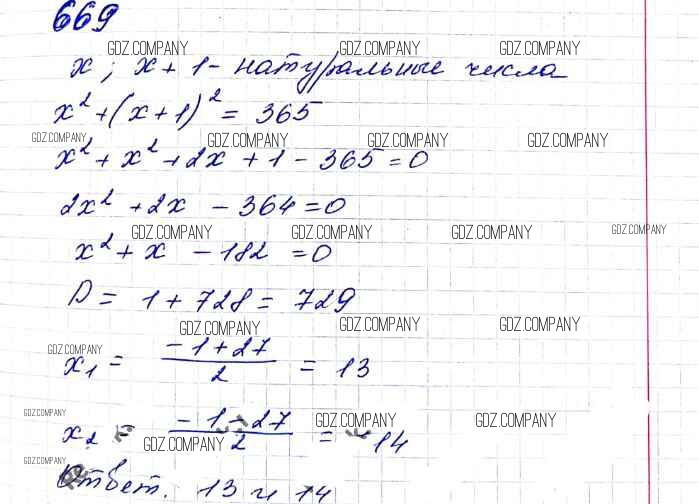 669
GDZ.COMPANY GDZ.COMPANY GDZ.COMPANY
x ; x + 1 - натуральные числа
x² + (x + 1)² = 365
GDZ.COMPANY GDZ.COMPANY GDZ.COMPANY GDZ.COMPANY
x² + x² + 2x + 1 - 365 = 0
2x² + 2x - 364 = 0
GDZ.COMPANY GDZ.COMPANY GDZ.COMPANY GDZ.COMPANY
x² + x - 182 = 0
D = 1 + 728 = 729
GDZ.COMPANY GDZ.COMPANY GDZ.COMPANY
x₁ = (-1 + 27)/2 = 13
GDZ.COMPANY
GDZ.COMPANY GDZ.COMPANY GDZ.COMPANY
x₂ = (-1 - 27)/2 = -14
GDZ.COMPANY
GDZ.COMPANY
Ответ. 13 и 14